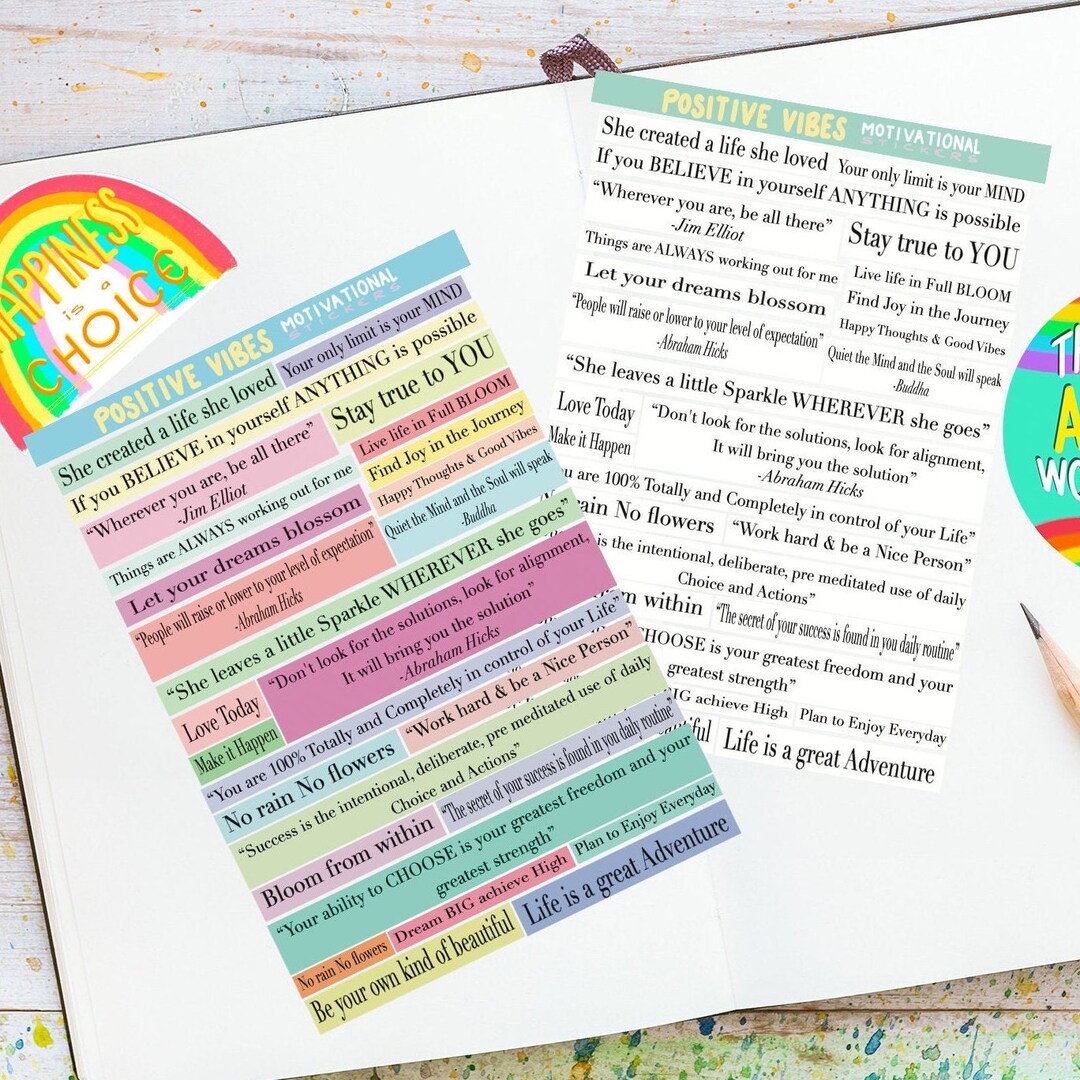 HAPPINESS
is a
CHOICE
POSITIVE VIBES MOTIVATIONAL
STICKERS
She created a life she loved
Your only limit is your MIND
If you BELIEVE in yourself ANYTHING is possible
“Wherever you are, be all there”
-Jim Elliot
Stay true to YOU
Things are ALWAYS working out for me
Live life in Full BLOOM
Let your dreams blossom
Find Joy in the Journey
Happy Thoughts & Good Vibes
“People will raise or lower to your level of expectation”
-Abraham Hicks
Quiet the Mind and the Soul will speak
-Buddha
“She leaves a little Sparkle WHEREVER she goes”
Love Today
Make it Happen
“Don't look for the solutions, look for alignment,
It will bring you the solution”
-Abraham Hicks
“You are 100% Totally and Completely in control of your Life”
No rain No flowers
“Work hard & be a Nice Person”
“Success is the intentional, deliberate, pre meditated use of daily
Choice and Actions”
Bloom from within
“The secret of your success is found in you daily routine”
“Your ability to CHOOSE is your greatest freedom and your
greatest strength”
No rain No flowers
Dream BIG achieve High
Plan to Enjoy Everyday
Be your own kind of beautiful
Life is a great Adventure
POSITIVE VIBES MOTIVATIONAL
STICKERS
She created a life she loved
Your only limit is your MIND
If you BELIEVE in yourself ANYTHING is possible
“Wherever you are, be all there”
-Jim Elliot
Stay true to YOU
Things are ALWAYS working out for me
Live life in Full BLOOM
Let your dreams blossom
Find Joy in the Journey
Happy Thoughts & Good Vibes
“People will raise or lower to your level of expectation”
-Abraham Hicks
Quiet the Mind and the Soul will speak
-Buddha
“She leaves a little Sparkle WHEREVER she goes”
Love Today
Make it Happen
“Don't look for the solutions, look for alignment,
It will bring you the solution”
-Abraham Hicks
are 100% Totally and Completely in control of your Life”
No flowers
“Work hard & be a Nice Person”
is the intentional, deliberate, pre meditated use of daily
Choice and Actions”
within
“The secret of your success is found in you daily routine”
CHOOSE is your greatest freedom and your
greatest strength”
achieve High
Plan to Enjoy Everyday
Life is a great Adventure